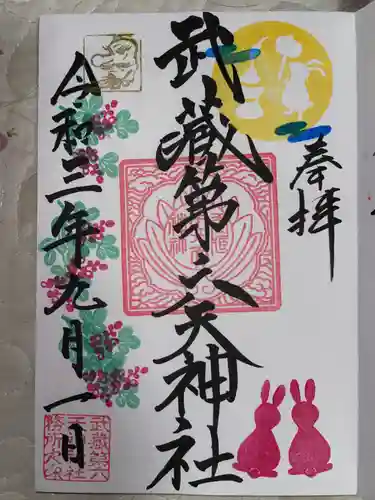 奉拝
武蔵第六天神社
令和三年九月一日
武蔵第六
天神社
務所之印